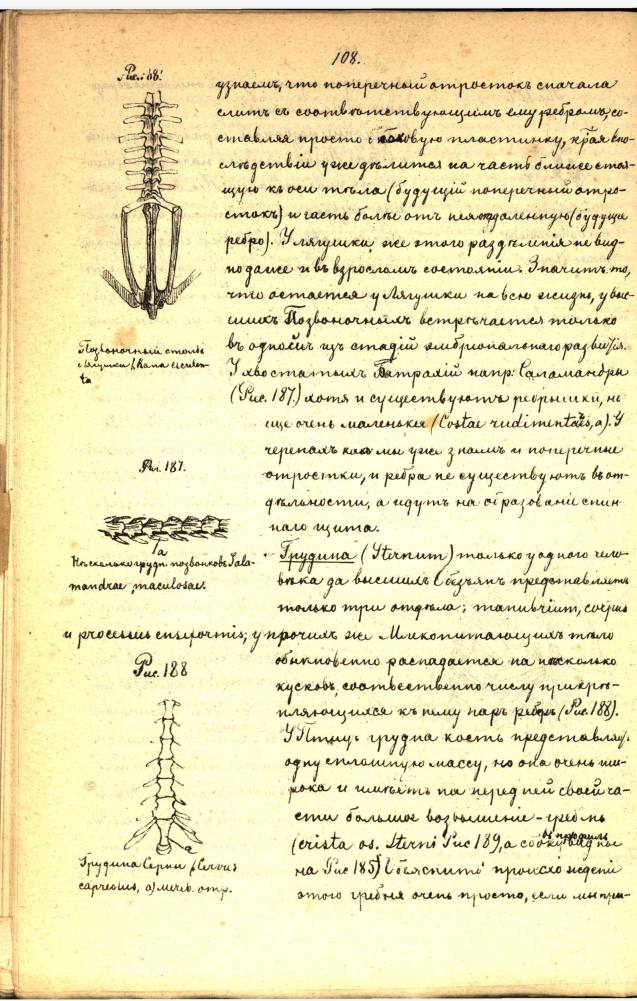 108.
Рис. 186.
узнаемъ, что поперечный отростокъ сначала
слитъ съ соотвѣтствующимъ ему ребромъ, со-
ставляя просто боковую пластинку, края впо-
слѣдствіи уже дѣлится на часть ближе стоя-
щую къ оси тѣла (будущій поперечный отро-
стокъ) и часть болѣе отъ нея отдаленную (будуще
ребро). У лягушки же этого раздѣленія не вид-
но даже и въ взросломъ состояніи. Значитъ то,
что остается у Лягушки на всю жизнь, у выс-
шихъ Позвоночныхъ встрѣчается только
въ одной изъ стадій эмбріональнаго развитія.
Позвоночный столбъ
лягушки Rana esculen-
ta
У хвостатыхъ Батрахій напр: Саламандры
(Рис. 187.) хотя и существуютъ ребрышки, но
еще очень маленькія (Costae rudimentales, a). У
черепахъ как мы уже знаемъ и поперечные
отростки, и ребра не существуютъ въ от-
дѣльности, а идутъ на образованіе спин-
наго щита.
Рис. 187.
a
Нѣсколько грудн позвонковъ Sala-
mandrae maculosae.
Грудина (Sternum) только у одного чело-
вѣка да высшихъ Обезьянъ представляетъ
только три отдѣла: manubrium, corpus
и processus ensiformis; у прочихъ же Млекопитающихъ тѣло
обыкновенно распадается на нѣсколько
кусковъ, соотвѣственно числу прикрѣ-
пляющихся къ нему паръ ребръ (Рис. 188).
Рис. 188
У Птицъ грудна кость представляетъ
одну сплошную массу, но она очень ши-
рока и имѣетъ на передней своей ча-
сти большое возвышеніе - гребень
(crista os. sterni Рис 189, а сбоку въ профиль
на Рис 185) Объяснить происхожденіе
этого гребня очень просто, если мы при-
Грудина Серны Cervus
capreolus, a) мечев. отр.